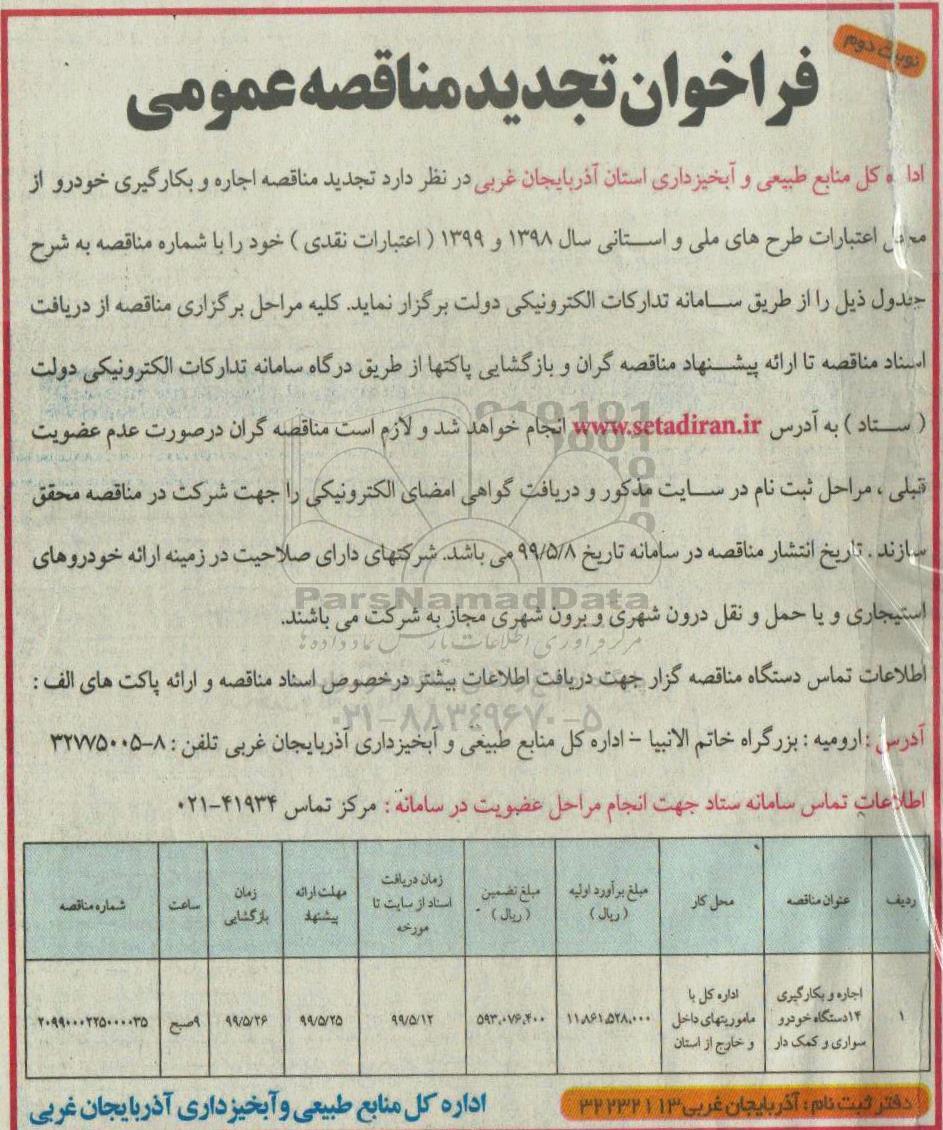 نوبت دوم
فراخوان تجدید مناقصه عمومی
اداره کل منابع طبیعی و آبخیزداری استان آذربایجان غربی در نظر دارد تجدید مناقصه اجاره و بکارگیری خودرو از
محل اعتبارات طرح های ملی و استانی سال ۱۳۹۸ و ۱۳۹۹ ( اعتبارات نقدی ) خود را با شماره مناقصه به شرح
جدول ذیل را از طریق سامانه تدارکات الکترونیکی دولت برگزار نماید. کلیه مراحل برگزاری مناقصه از دریافت
اسناد مناقصه تا ارائه پیشنهاد مناقصه گران و بازگشایی پاکتها از طریق درگاه سامانه تدارکات الکترونیکی دولت
( ستاد ) به آدرس www.setadiran.ir انجام خواهد شد و لازم است مناقصه گران درصورت عدم عضویت
قبلی ، مراحل ثبت نام در سایت مذکور و دریافت گواهی امضای الکترونیکی را جهت شرکت در مناقصه محقق
سازند . تاریخ انتشار مناقصه در سامانه تاریخ ۹۹/۵/۸ می باشد. شرکتهای دارای صلاحیت در زمینه ارائه خودروهای
استیجاری و یا حمل و نقل درون شهری و برون شهری مجاز به شرکت می باشند.
ParsNamadData
مرکز فرآوری اطلاعات پارس نماد داده ها
اطلاعات تماس دستگاه مناقصه گزار جهت دریافت اطلاعات بیشتر درخصوص اسناد مناقصه و ارائه پاکت های الف :
۰۲۱-۸۸۳۴۹۶۷۰-۵
آدرس : ارومیه : بزرگراه خاتم الانبیا - اداره کل منابع طبیعی و آبخیزداری آذربایجان غربی تلفن : ۸-۳۲۷۷۵۰۰۵
اطلاعات تماس سامانه ستاد جهت انجام مراحل عضویت در سامانه : مرکز تماس ۴۱۹۳۴-۰۲۱
ردیف | عنوان مناقصه | محل کار | مبلغ برآورد اولیه ( ریال ) | مبلغ تضمین ( ریال ) | زمان دریافت اسناد از سایت تا مورخه | مهلت ارائه پیشنهاد | زمان بازگشایی | ساعت | شماره مناقصه
۱ | اجاره و بکارگیری ۱۴دستگاه خودرو سواری و کمک دار | اداره کل با ماموریتهای داخل و خارج از استان | ۱۱,۸۶۱,۵۲۸,۰۰۰ | ۵۹۳,۰۷۶,۴۰۰ | ۹۹/۵/۱۲ | ۹۹/۵/۲۵ | ۹۹/۵/۲۶ | ۹صبح | ۲۰۹۹۰۰۰۲۲۵۰۰۰۰۳۵
دفتر ثبت نام : آذربایجان غربی ۳۲۲۳۲۱۱۳
اداره کل منابع طبیعی و آبخیزداری آذربایجان غربی